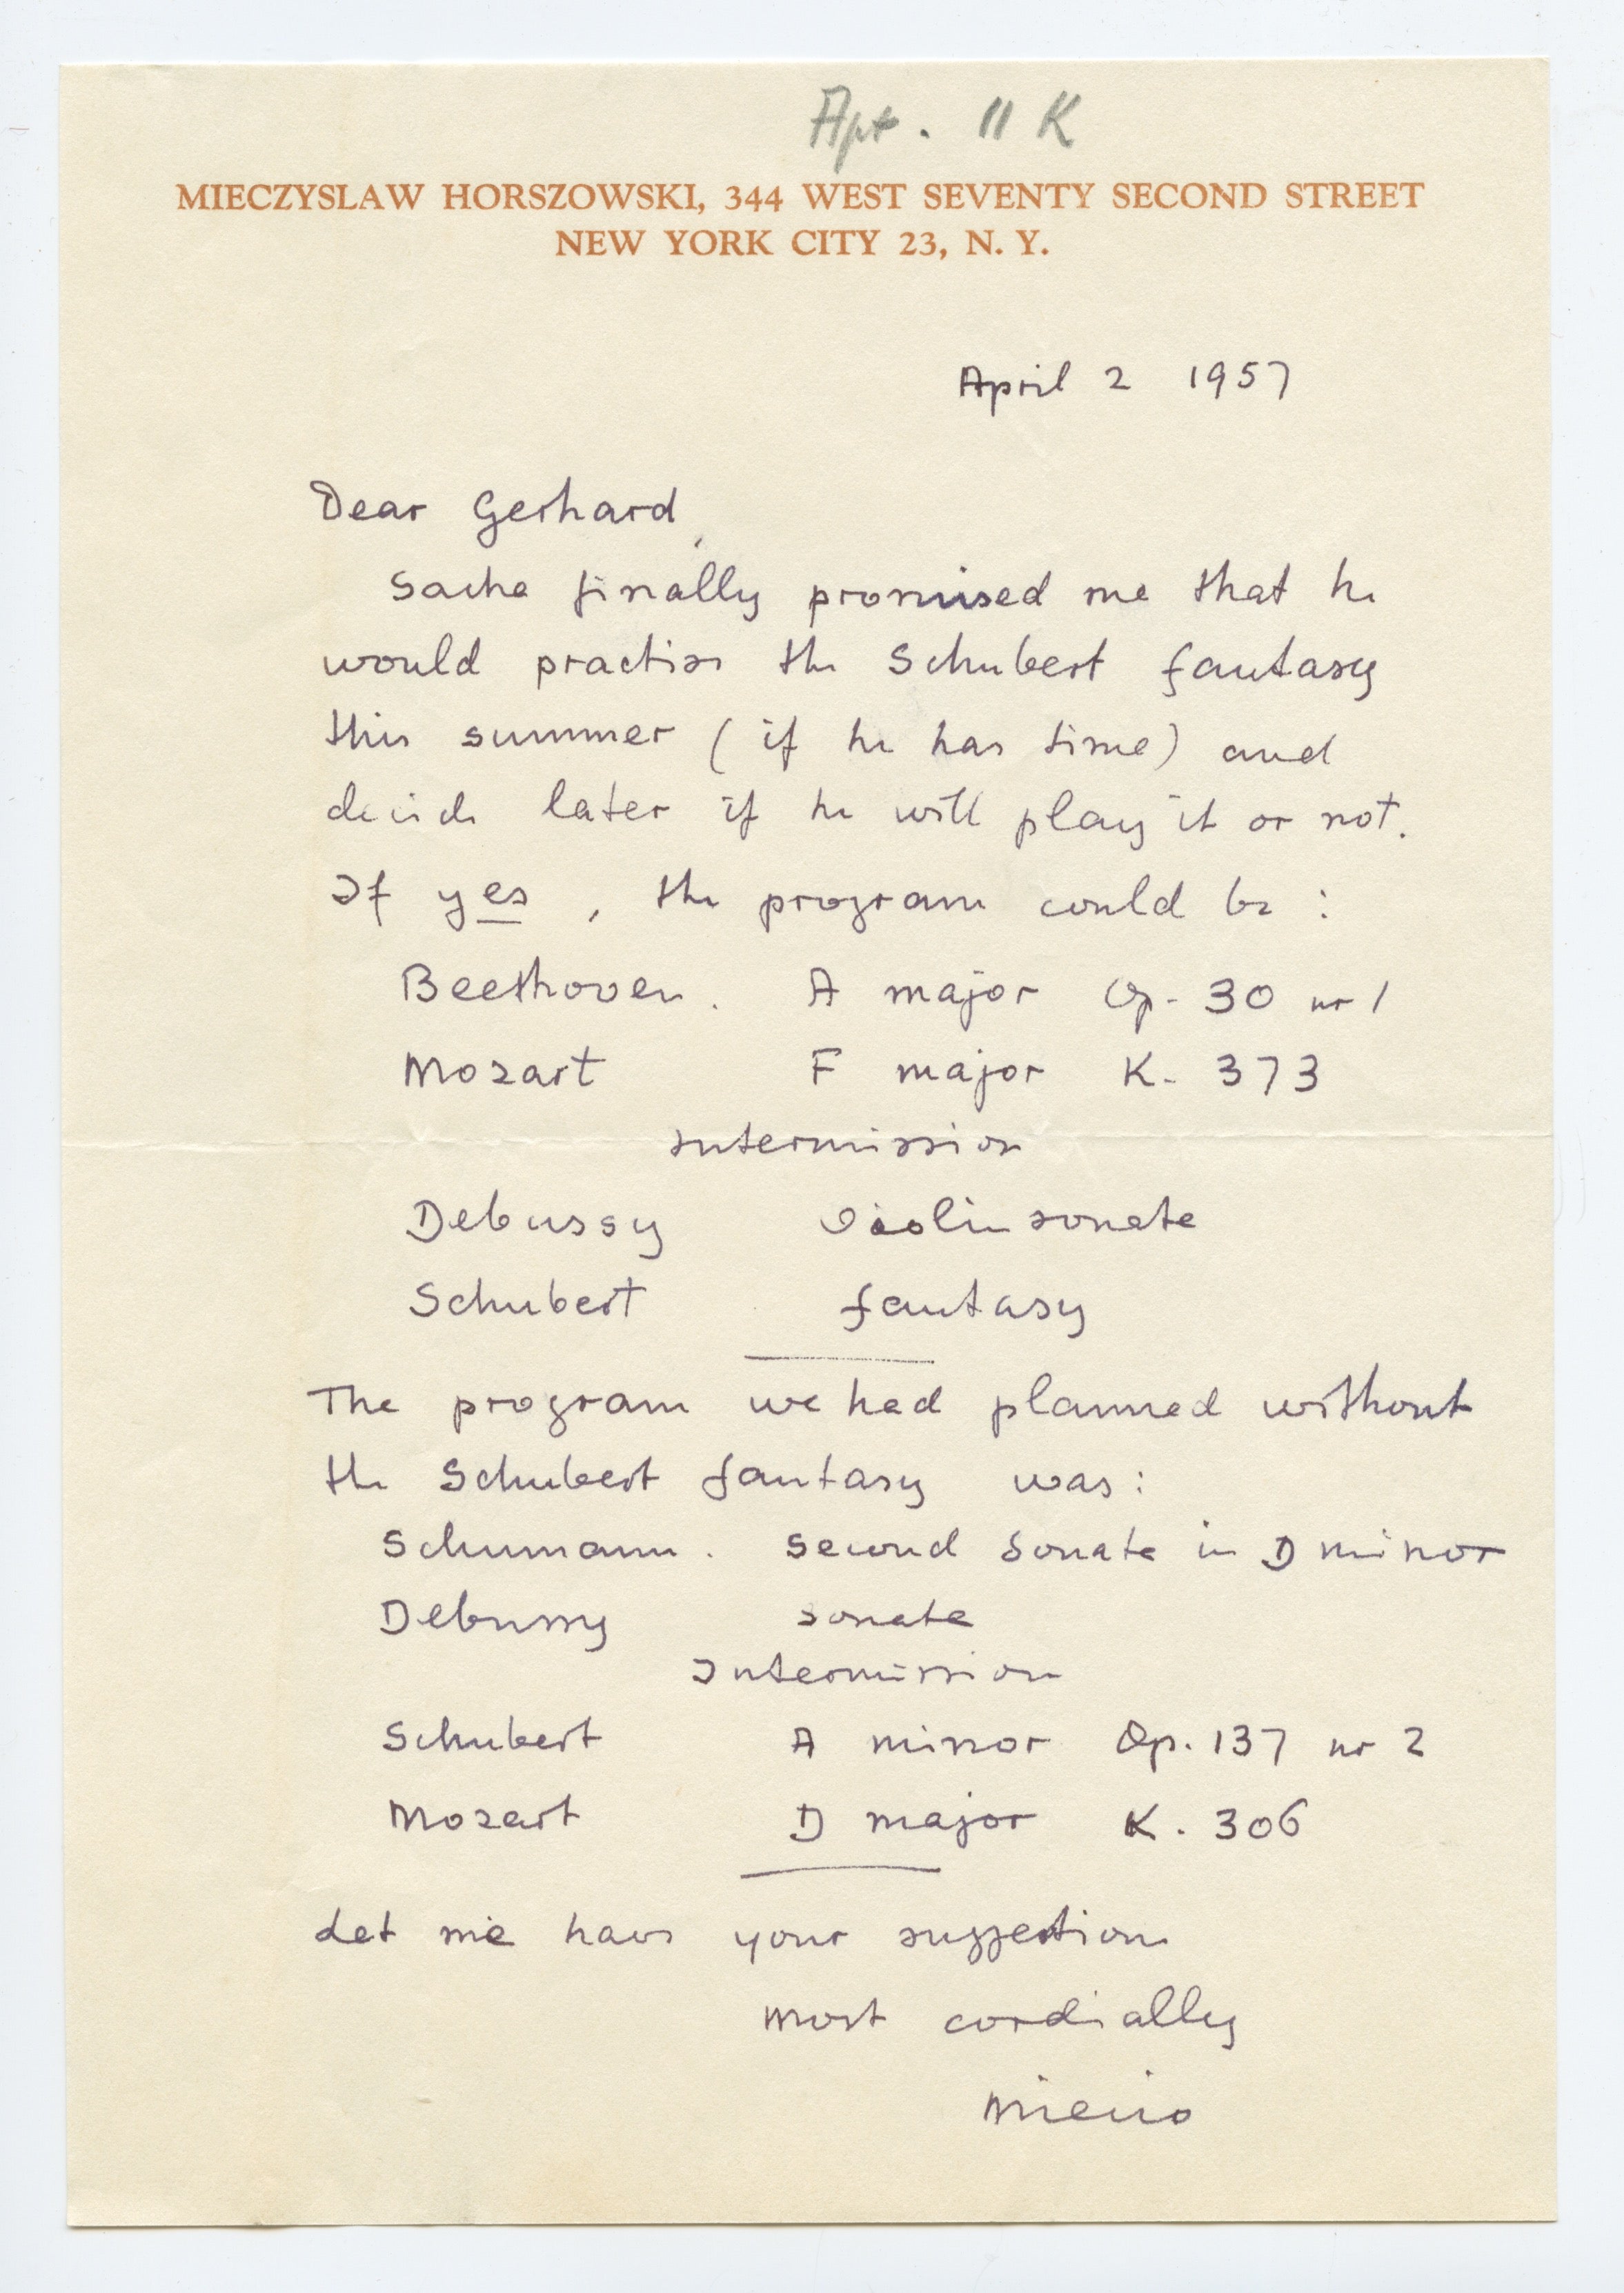 Apt. 11 K
MIECZYSLAW HORSZOWSKI, 344 WEST SEVENTY SECOND STREET
NEW YORK CITY 23, N. Y.
April 2 1957
Dear Gerhard,
Sacha finally promised me that he
would practise the Schubert fantasy
this summer (if he has time) and
decide later if he will play it or not.
If yes, the program could be:
Beethoven. A major Op. 30 nr 1
Mozart F major K. 373
Intermission
Debussy Violin sonate
Schubert fantasy
The program we had planned without
the Schubert fantasy was:
Schumann. Second Sonate in D minor
Debussy sonate
Intermission
Schubert A minor Op. 137 nr 2
Mozart D major K. 306
Let me have your suggestion
most cordially
Miecio